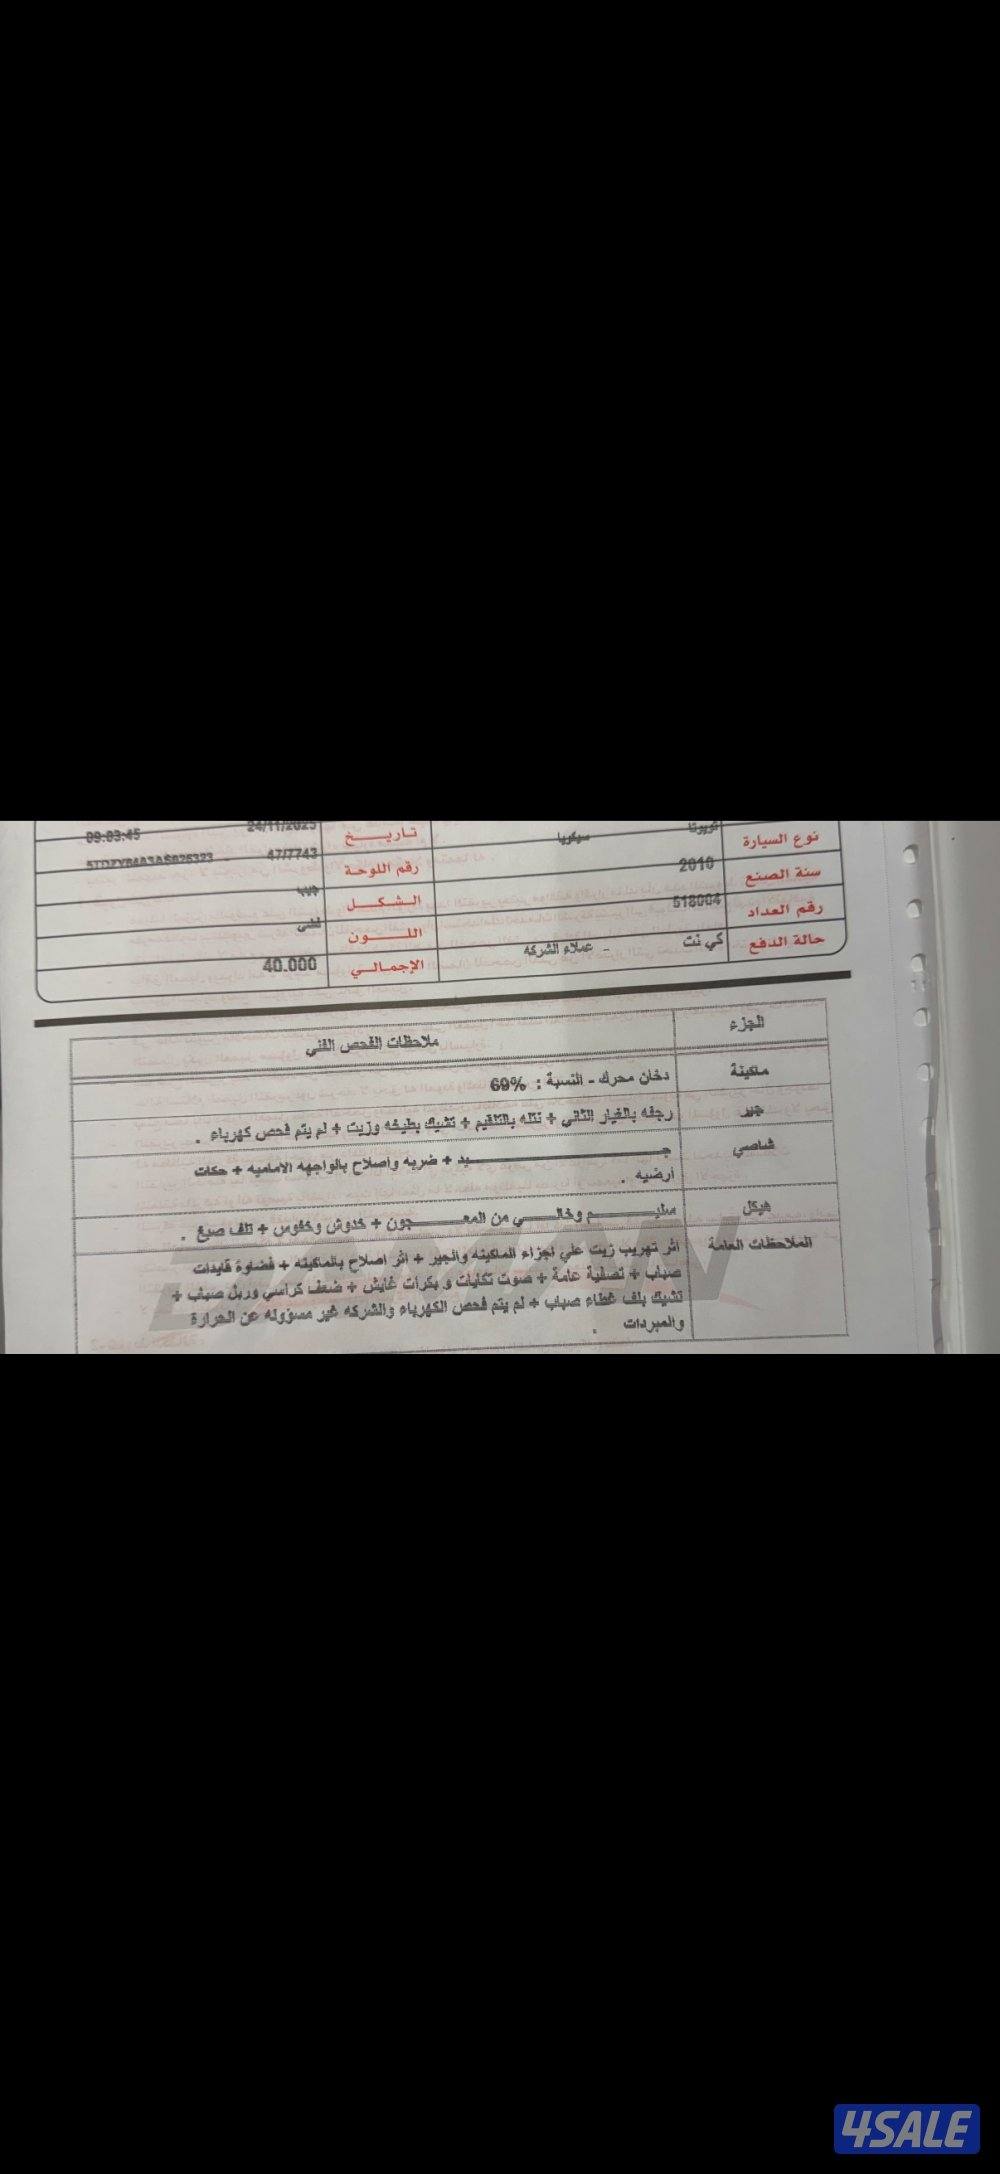 نوع السيارة تويوتا سيكويا تاريخ 24/11/2025 09:03:45
سنة الصنع 2010 رقم اللوحة 47/7743
رقم العداد 518004 الشكل جيب
حالة الدفع كي نت - عملاء الشركه اللون
الإجمالي 40.000
الجزء ملاحظات الفحص الفني
ماكينة دخان محرك - النسبة : 69%
جير رجفه بالخيار الثاني + نتله بالتقيم + تشيك بطيخه وزيت + لم يتم فحص كهرباء .
شاصي جيد + ضربه واصلاح بالواجهه الاماميه + حكات
ارضيه .
هيكل سليم وخالي من المعجون + خدوش وخفوس + تلف صبغ .
الملاحظات العامة اثر تهريب زيت علي اجزاء الماكينه والجير + اثر اصلاح بالماكينه + فضاوة قايدات
صباب + تصفية عامة + صوت تكايات و بكرات قايش + ضعف كراسي وربل صباب +
تشيك بلف غطاء صباب + لم يتم فحص الكهرباء والشركه غير مسؤوله عن الحرارة
والمبردات .
4SALE